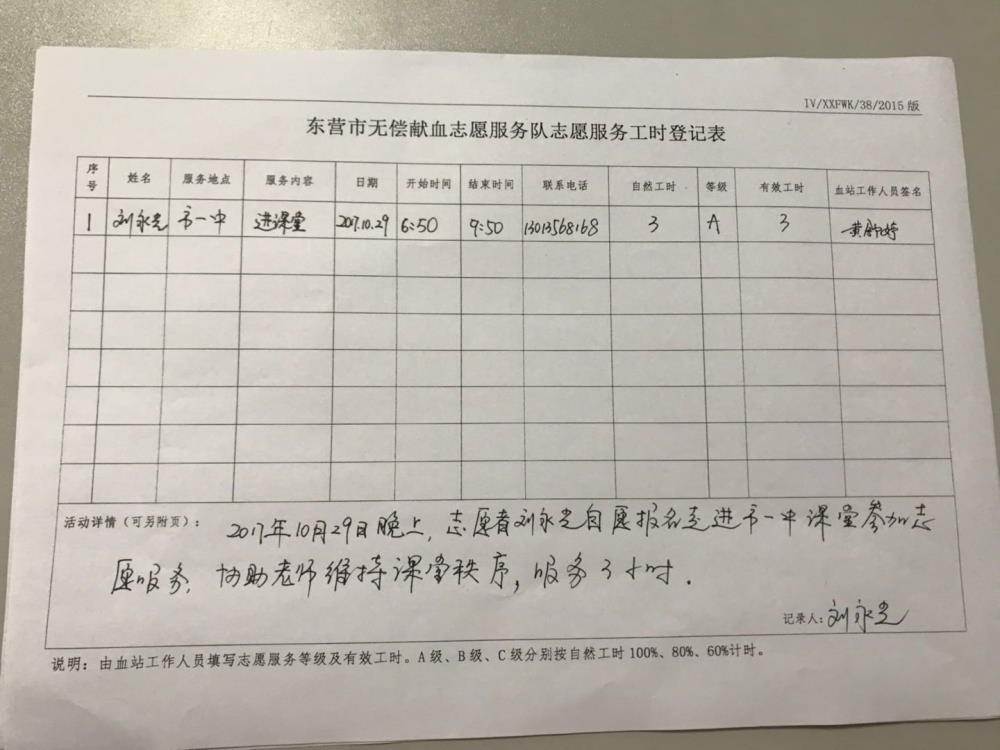 IV/XXFWK/38/2015 版
东营市无偿献血志愿服务队志愿服务工时登记表
序号 姓名 服务地点 服务内容 日期 开始时间 结束时间 联系电话 自然工时 等级 有效工时 血站工作人员签名
1 刘永光 市一中 进课堂 2017.10.29 6:50 9:50 13013568168 3 A 3 黄
活动详情（可另附页）： 2017年10月29日晚上，志愿者刘永光自愿报名走进市一中课堂参加志
愿服务，协助老师维持课堂秩序，服务3小时.
记录人：刘永光
说明：由血站工作人员填写志愿服务等级及有效工时。A级、B级、C级分别按自然工时100%、80%、60%计时。